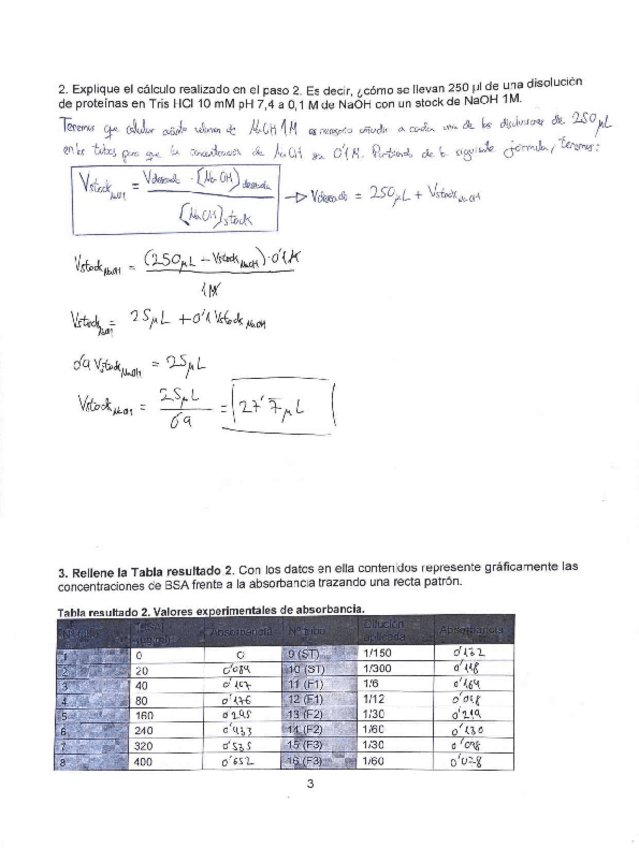 2. Explique el cálculo realizado en el paso 2. Es decir, ¿cómo se llevan 250 µl de una disolución
de proteínas en Tris HCl 10 mM pH 7,4 a 0,1 M de NaOH con un stock de NaOH 1M.
Tenemos que calcular cuánto volumen de NaOH 1M es necesario añadir a cada una de las disoluciones de 250 µL
en los tubos para que la concentración de NaOH sea 0'1M. Partiendo de la siguiente fórmula, tenemos:
Vstock NaOH = Vdeseado · [NaOH] deseada / [NaOH] stock → Vdeseado = 250µL + Vstock NaOH
Vstock NaOH = (250µL - Vstock NaOH) · 0'1M / 1M
Vstock NaOH = 25µL + 0'1 Vstock NaOH
0'9 Vstock NaOH = 25µL
Vstock NaOH = 25µL / 0'9 = 27'7µL
3. Rellene la Tabla resultado 2. Con los datos en ella contenidos represente gráficamente las
concentraciones de BSA frente a la absorbancia trazando una recta patrón.
Tabla resultado 2. Valores experimentales de absorbancia.
Nº tubo Absorbancia Nº tubo Dilución aplicada Absorbancia
1 0 0 9 (ST) 1/150 0'132
2 20 0'084 10 (ST) 1/300 0'118
3 40 0'107 11 (F1) 1/6 0'164
4 80 0'176 12 (F1) 1/12
5 160 0'245 13 (F2) 1/30 0'219
6 240 0'433 14 (F2) 1/60 0'130
7 320 0'535 15 (F3) 1/30 0'098
8 400 0'652 16 (F3) 1/60 0'028
3